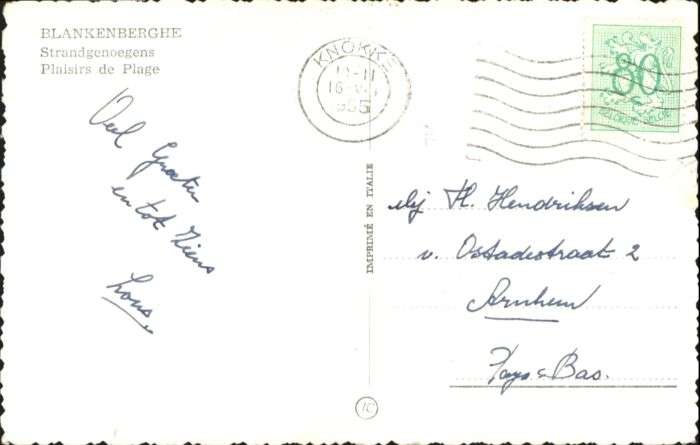 BLANKENBERGHE
Strandgenoegens
Plaisirs de Plage
Veel Groeten
en tot Ziens
Louis
IMPRIMÉ EN ITALIE
KNOKKE
1955
80
BELGIQUE-BELGIE
H. Hendriksen
v. Ostadestraat 2
Arnhem
Pays-Bas.